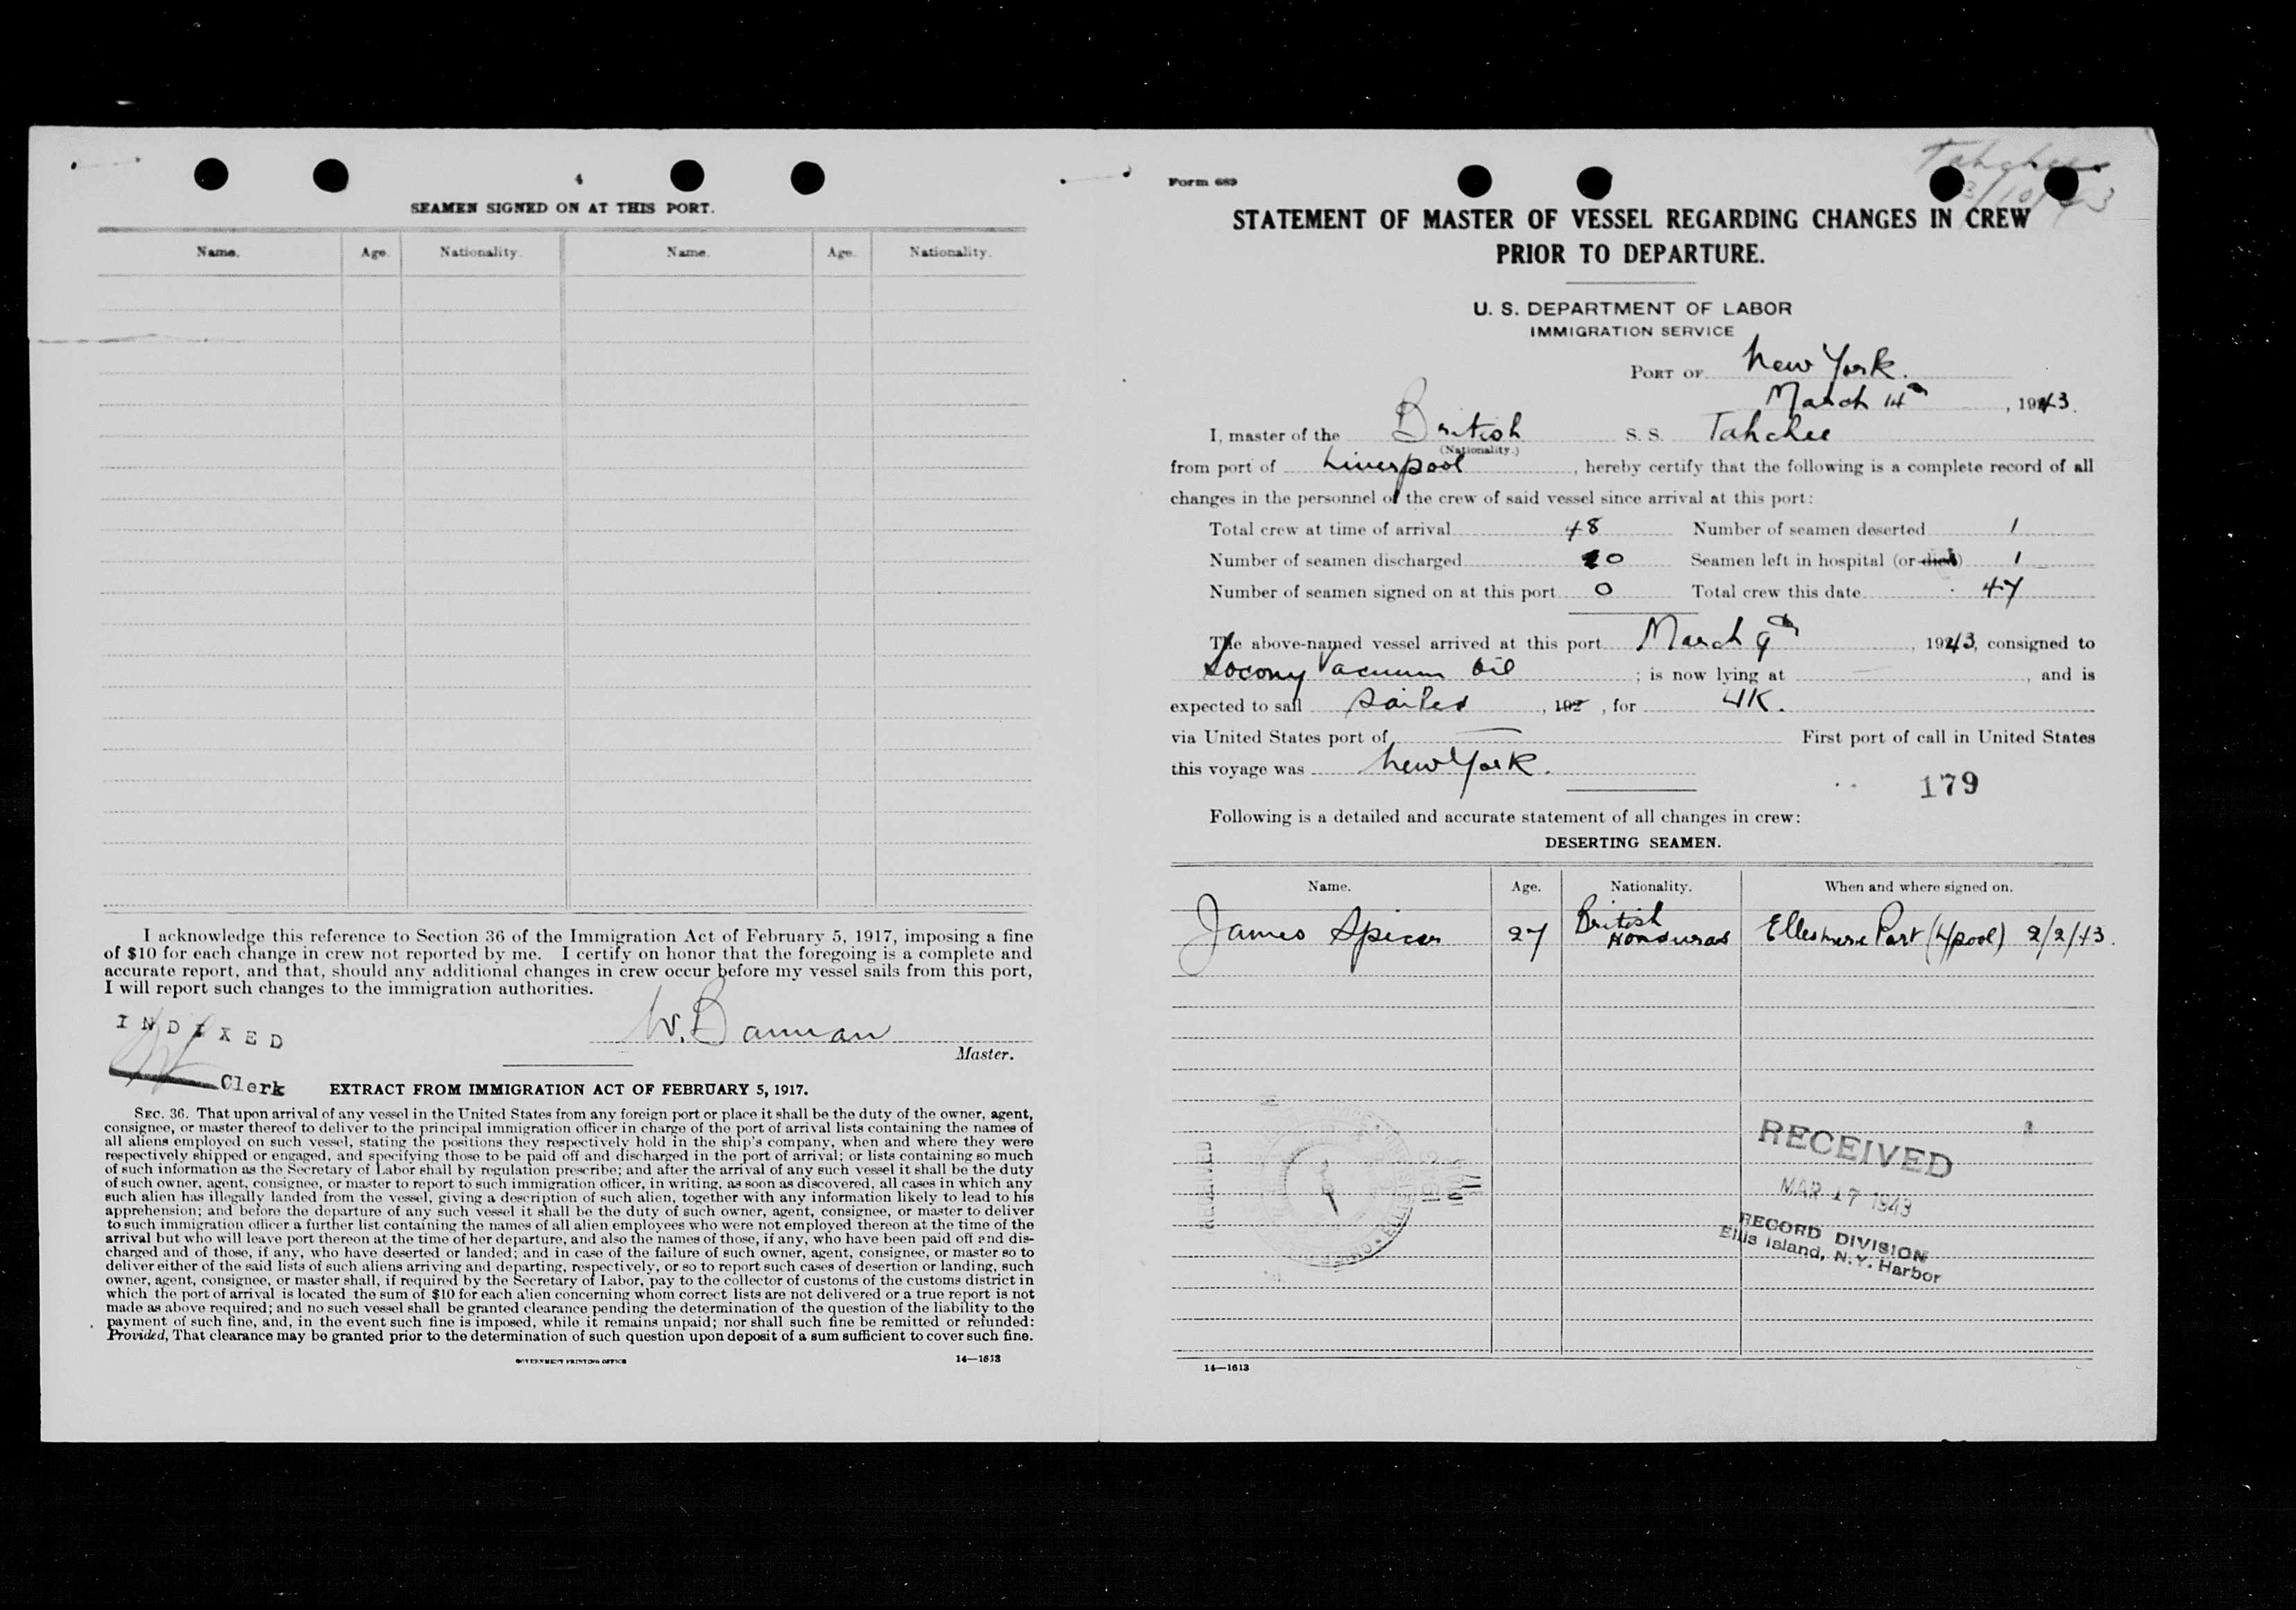 4
SEAMEN SIGNED ON AT THIS PORT.
Name. Age. Nationality. Name. Age. Nationality.
I acknowledge this reference to Section 36 of the Immigration Act of February 5, 1917, imposing a fine
of $10 for each change in crew not reported by me. I certify on honor that the foregoing is a complete and
accurate report, and that, should any additional changes in crew occur before my vessel sails from this port,
I will report such changes to the immigration authorities.
INDEXED
W. Barman
Master.
Clerk
EXTRACT FROM IMMIGRATION ACT OF FEBRUARY 5, 1917.
SEC. 36. That upon arrival of any vessel in the United States from any foreign port or place it shall be the duty of the owner, agent,
consignee, or master thereof to deliver to the principal immigration officer in charge of the port of arrival lists containing the names of
all aliens employed on such vessel, stating the positions they respectively hold in the ship's company, when and where they were
respectively shipped or engaged, and specifying those to be paid off and discharged in the port of arrival; or lists containing so much
of such information as the Secretary of Labor shall by regulation prescribe; and after the arrival of any such vessel it shall be the duty
of such owner, agent, consignee, or master to report to such immigration officer, in writing, as soon as discovered, all cases in which any
such alien has illegally landed from the vessel, giving a description of such alien, together with any information likely to lead to his
apprehension; and before the departure of any such vessel it shall be the duty of such owner, agent, consignee, or master to deliver
to such immigration officer a further list containing the names of all alien employees who were not employed thereon at the time of the
arrival but who will leave port thereon at the time of her departure, and also the names of those, if any, who have been paid off and dis-
charged and of those, if any, who have deserted or landed; and in case of the failure of such owner, agent, consignee, or master so to
deliver either of the said lists of such aliens arriving and departing, respectively, or so to report such cases of desertion or landing, such
owner, agent, consignee, or master shall, if required by the Secretary of Labor, pay to the collector of customs of the customs district in
which the port of arrival is located the sum of $10 for each alien concerning whom correct lists are not delivered or a true report is not
made as above required; and no such vessel shall be granted clearance pending the determination of the question of the liability to the
payment of such fine, and, in the event such fine is imposed, while it remains unpaid; nor shall such fine be remitted or refunded:
Provided, That clearance may be granted prior to the determination of such question upon deposit of a sum sufficient to cover such fine.
GOVERNMENT PRINTING OFFICE
14—1613
Tahchee
3/10/43
Form 689
STATEMENT OF MASTER OF VESSEL REGARDING CHANGES IN CREW
PRIOR TO DEPARTURE.
U. S. DEPARTMENT OF LABOR
IMMIGRATION SERVICE
PORT OF New York.
March 14th, 1943.
I, master of the British S. S. Tahchee
(Nationality.)
from port of Liverpool, hereby certify that the following is a complete record of all
changes in the personnel of the crew of said vessel since arrival at this port:
Total crew at time of arrival 48 Number of seamen deserted 1
Number of seamen discharged 0 Seamen left in hospital (or died) 1
Number of seamen signed on at this port 0 Total crew this date 47
The above-named vessel arrived at this port March 9th, 1943, consigned to
Socony Vacuum Oil; is now lying at —, and is
expected to sail sailed, 192 , for UK.
via United States port of — First port of call in United States
this voyage was New York.
179
Following is a detailed and accurate statement of all changes in crew:
DESERTING SEAMEN.
Name. Age. Nationality. When and where signed on.
James Spicer 27 British Honduras Ellesmere Port (L/pool) 2/2/43.
RECEIVED
MAR 17 1943
RECORD DIVISION
Ellis Island, N.Y. Harbor
14—1613